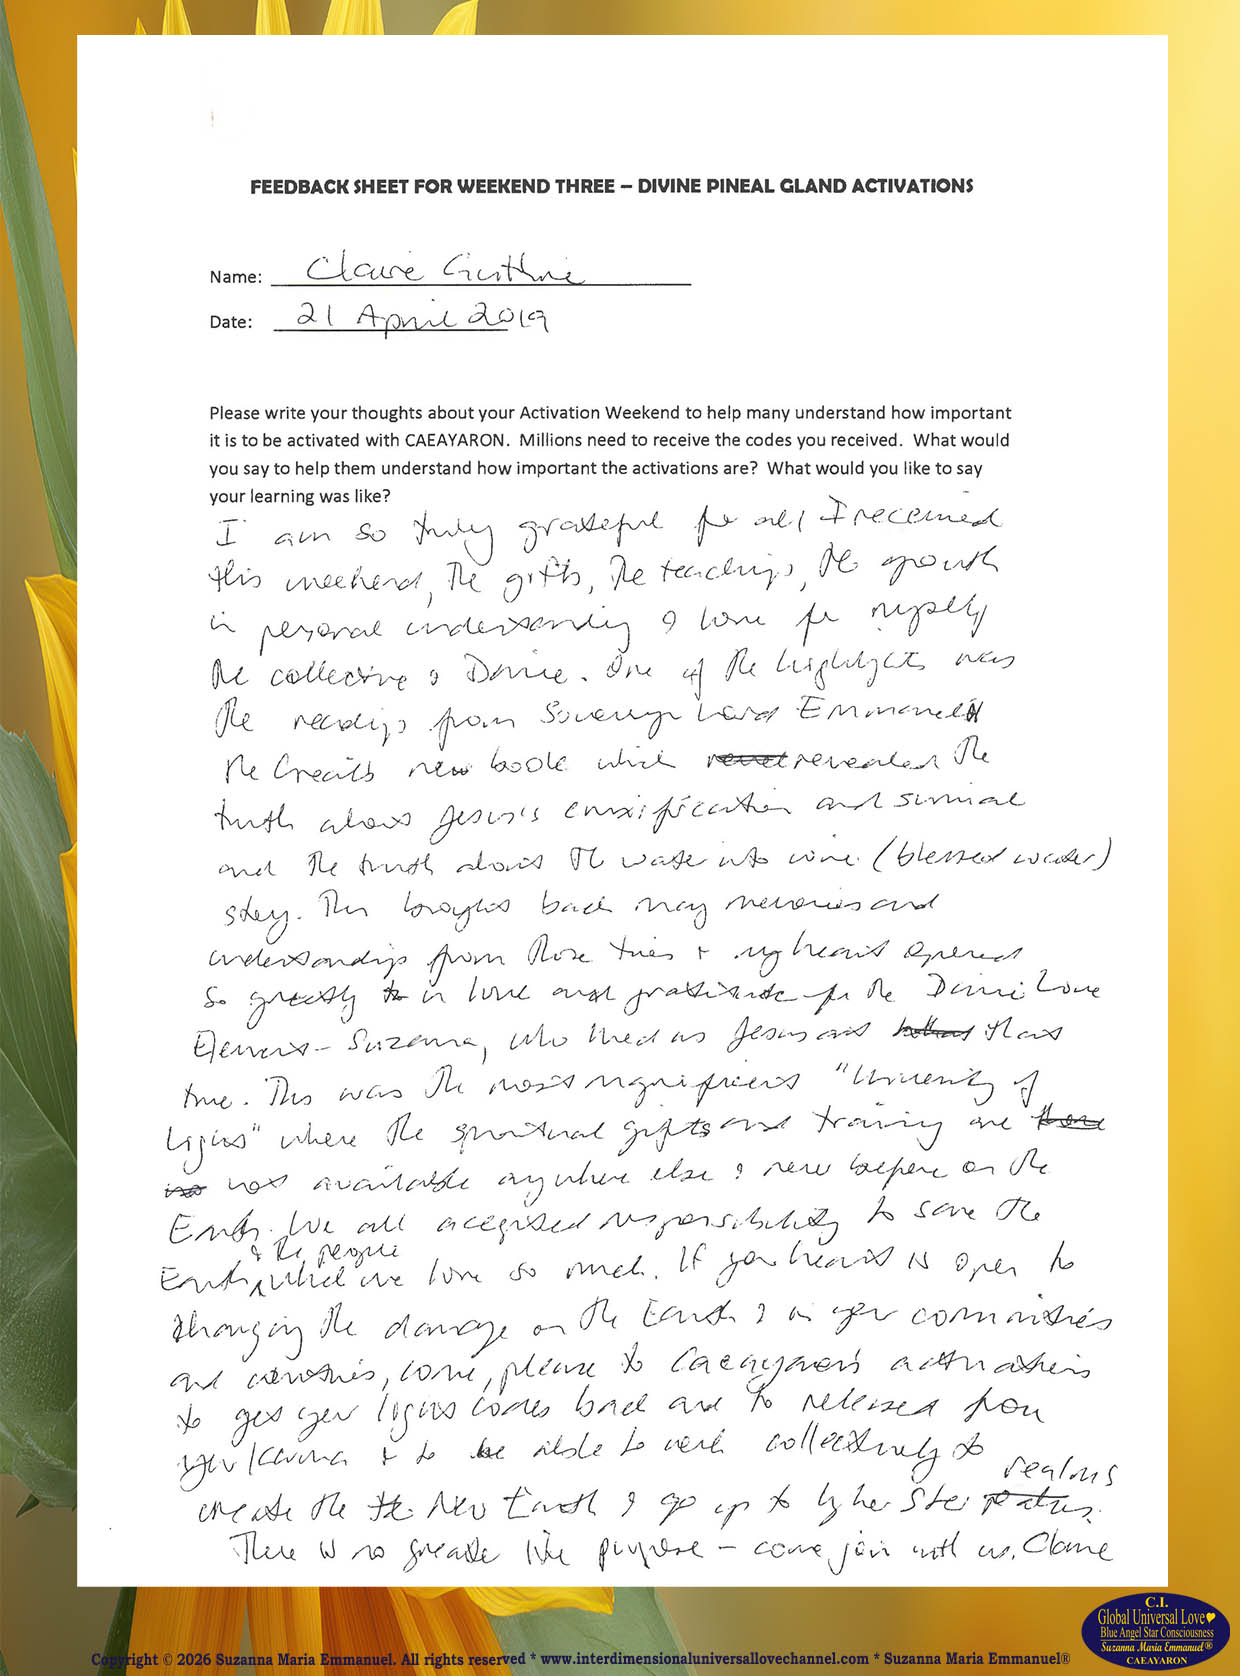 FEEDBACK SHEET FOR WEEKEND THREE – DIVINE PINEAL GLAND ACTIVATIONS
Name: Claire Guthrie
Date: 21 April 2019
Please write your thoughts about your Activation Weekend to help many understand how important
it is to be activated with CAEAYARON. Millions need to receive the codes you received. What would
you say to help them understand how important the activations are? What would you like to say
your learning was like?
I am so truly grateful for all I received
this weekend, the gifts, the teachings, the growth
in personal understanding & love for myself
the collective & Divine. One of the highlights was
the readings from Sovereign Lord Emmanuel
the Great's new book which revealed the
truth about Jesus's cruxification and survival
and the truth about the water into wine (blessed water)
story. This brought back many memories and
understandings from those times + my heart opened
so greatly in love and gratitude for the Divine Love
Element - Suzanna, who lived as Jesus at that
time. This was the most magnificent "University of
Lights" where the spiritual gifts and training are
not available anywhere else & never before on the
Earth. We all accepted responsibility to save the
Earth & the people which we love so much. If your heart is open to
changing the damage on the Earth & in your communities
and countries, come, please to Caeayaron's activations
to get your lights codes back and to released from
your karma + to be able to work collectively to
create the New Earth & go up to higher Star realms
There is no greater life purpose – come join with us. Claire
C.I.
Global Universal Love
Blue Angel Star Consciousness
Suzanna Maria Emmanuel®
CAEAYARON
Copyright © 2026 Suzanna Maria Emmanuel. All rights reserved * www.interdimensionaluniversallovechannel.com * Suzanna Maria Emmanuel®